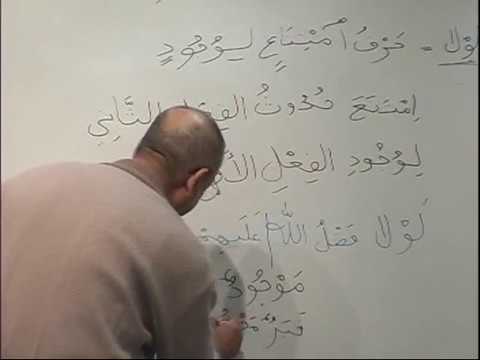 لولا = حَرْفُ امْتِنَاعٍ لِوُجُودٍ
اِمْتَنَعَ حُدُوثُ الفِعْلِ الثَّانِي
لِوُجُودِ الفِعْلِ
لَوْلَا فَضْلُ اللَّهِ
مَوْجُودٌ
خَبَرٌ